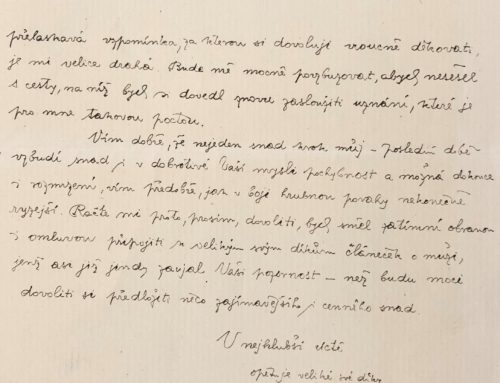 přelaskavá vzpomínka, za kterou si dovoluji vroucně děkovati,
je mi velice drahá. Bude mě mocně povzbuzovat, abych nesešel
s cesty, na níž bych si dovedl znovu zasloužiti uznání, které je
pro mne takovou poctou.
Vím dobře, že nejeden snad krok můj – poslední dobou –
vzbudí snad i v dobrotivé Vaší mysli pochybnost a možná dokonce
i rozmrzení, vím předobře, jak v boji hrubnou povahy nekonečně
ryzejší. Račte mi proto, prosím, dovoliti, bych směl zatímní obranou
i omluvou připojiti k velikým svým díkům článeček o muži,
jenž asi již jindy zaujal Vaši pozornost – než budu moci
dovoliti si předložiti něco zajímavějšího i cenného snad
V nejhlubší úctě
opětuje veliké své díky